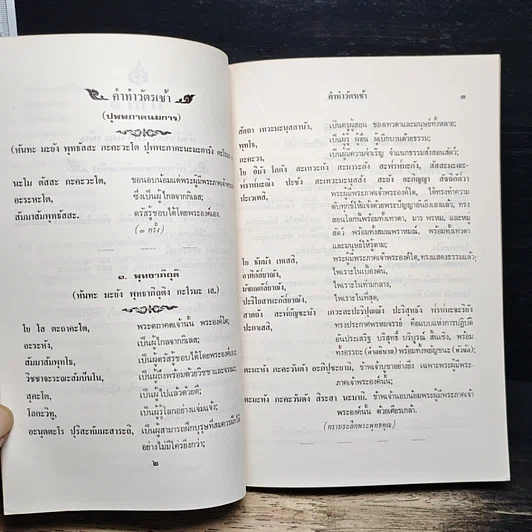 คำทำวัตรเช้า
(ปุพพภาคนมการ)
(หันทะ มะยัง พุทธัสสะ ภะคะวะโต ปุพพะภาคะนะมะการัง กะโรมะ
นะโม ตัสสะ ภะคะวะโต, ขอนอบน้อมแด่พระผู้มีพระภาคเจ้า
อะระหะโต, ซึ่งเป็นผู้ไกลจากกิเลส;
สัมมาสัมพุทธัสสะ. ตรัสรู้ชอบได้โดยพระองค์เอง.
(๓ ครั้ง)
๑. พุทธาภิถุติ
(หันทะ มะยัง พุทธาภิถุติง กะโรมะ เส.)
โย โส ตะถาคะโต, พระตถาคตเจ้านั้น พระองค์ใด;
อะระหัง, เป็นผู้ไกลจากกิเลส;
สัมมาสัมพุทโธ, เป็นผู้ตรัสรู้ชอบได้โดยพระองค์เอง;
วิชชาจะระณะสัมปันโน, เป็นผู้ถึงพร้อมด้วยวิชชาและจรณะ;
สุคะโต, เป็นผู้ไปแล้วด้วยดี;
โลกะวิทู, เป็นผู้รู้โลกอย่างแจ่มแจ้ง;
อะนุตตะโร ปุริสะทัมมะสาระถิ, เป็นผู้สามารถฝึกบุรุษที่สมควรฝึกได้
อย่างไม่มีใครยิ่งกว่า;
๒
คำทำวัตรเช้า ๓
สัตถา เทวะมะนุสสานัง, เป็นครูผู้สอน ของเทวดาและมนุษย์ทั้งหลาย;
พุทโธ, เป็นผู้รู้ ผู้ตื่น ผู้เบิกบานด้วยธรรม;
ภะคะวา, เป็นผู้มีความจำเริญ จำแนกธรรมสั่งสอนสัตว์;
โย อิมัง โลกัง สะเทวะกัง สะมาระกัง สะพ๎รัห๎มะกัง, สัสสะมะณะ-
พ๎ราห๎มะณิง ปะชัง สะเทวะมะนุสสัง สะยัง อะภิญญา สัจฉิกัต๎วา
ปะเวเทสิ, พระผู้มีพระภาคเจ้าพระองค์ใด, ได้ทรงทำความ
ดับทุกข์ให้แจ้งด้วยพระปัญญาอันยิ่งเองแล้ว, ทรง
สอนโลกนี้พร้อมทั้งเทวดา, มาร พรหม, และหมู่
สัตว์ พร้อมทั้งสมณพราหมณ์, พร้อมทั้งเทวดา
และมนุษย์ให้รู้ตาม;
โย ธัมมัง เทเสสิ, พระผู้มีพระภาคเจ้าพระองค์ใด, ทรงแสดงธรรมแล้ว;
อาทิกัล๎ยาณัง, ไพเราะในเบื้องต้น,
มัชเฌกัล๎ยาณัง, ไพเราะในท่ามกลาง,
ปะริโยสานะกัล๎ยาณัง, ไพเราะในที่สุด,
สาตถัง สะพ๎ยัญชะนัง เกวะละปะริปุณณัง ปะริสุทธัง พ๎รัห๎มะจะริยัง
ปะกาเสสิ, ทรงประกาศพรหมจรรย์ คือแบบแห่งการปฏิบัติ
อันประเสริฐ บริสุทธิ์ บริบูรณ์ สิ้นเชิง, พร้อม
ทั้งอรรถะ (คำอธิบาย) พร้อมทั้งพยัญชนะ (หัวข้อ);
ตะมะหัง ภะคะวันตัง อะภิปูชะยามิ, ข้าพเจ้าบูชาอย่างยิ่ง เฉพาะพระผู้มีพระ-
ภาคเจ้าพระองค์นั้น;
ตะมะหัง ภะคะวันตัง สิระสา นะมามิ. ข้าพเจ้านอบน้อมพระผู้มีพระภาคเจ้า
พระองค์นั้น ด้วยเศียรเกล้า.
(กราบระลึกพระพุทธคุณ)